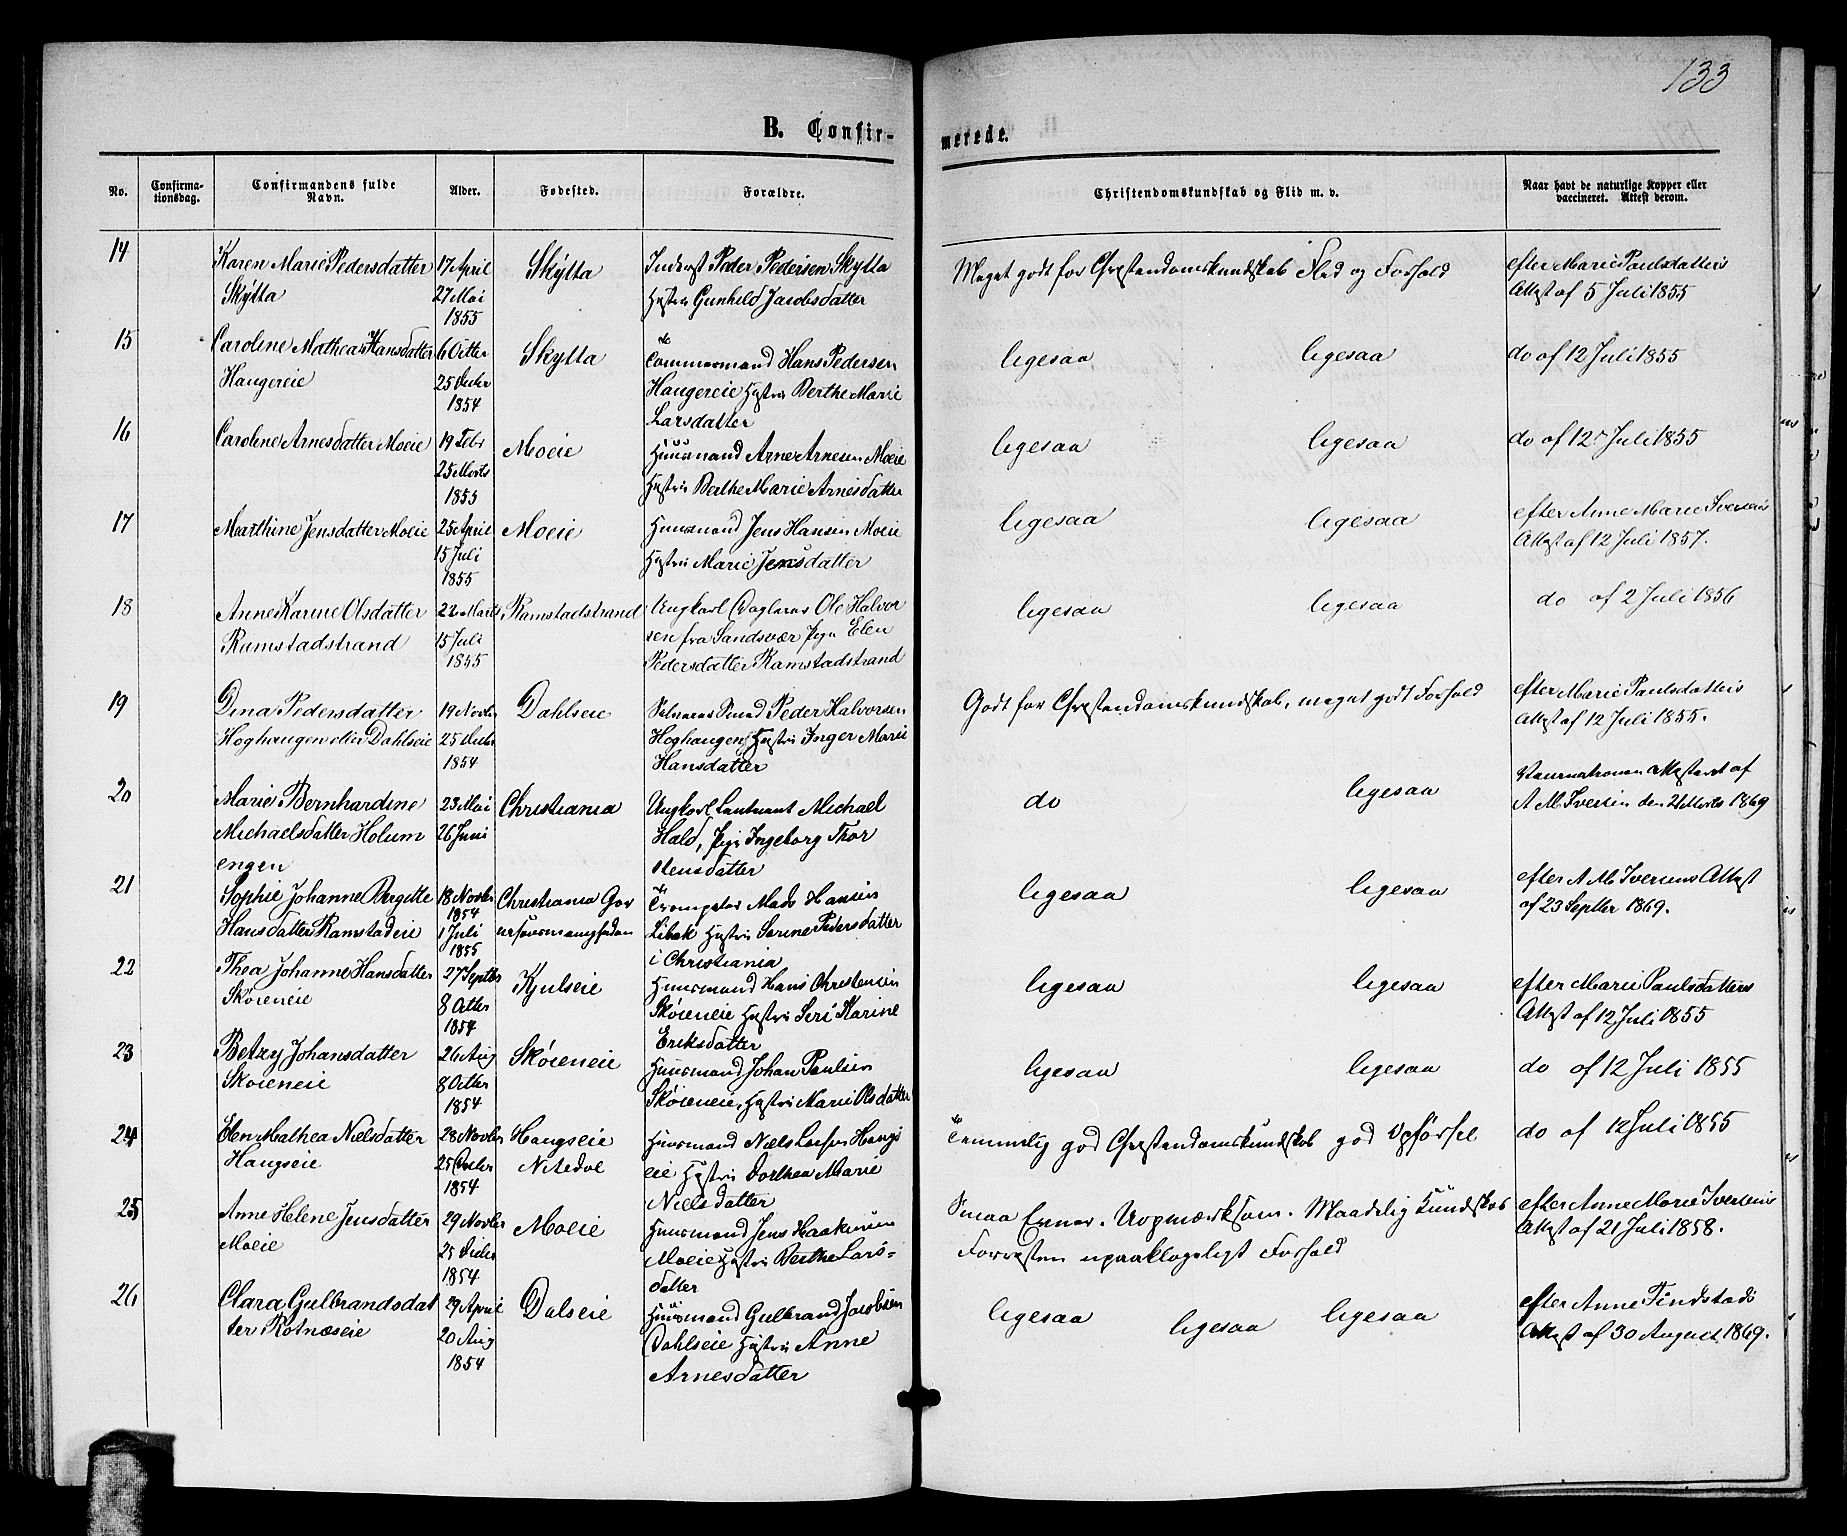 133
B. Confir-
merede.
No.
Confirma-
tionsdag.
Confirmandens fulde
Navn.
Alder.
Fødested.
Forældre.
Christendomskundskab og Flid m. v.
Naar havt de naturlige Kopper eller
vaccineret. Attest derom.
14
Karen Marie Pedersdatter
Skÿtta
17 April
27 Mai
1855
Skÿtta
Inderst Peder Pedersen Skytta
Hustru Gunhild Jacobsdatter
Meget godt for Christendomskundskab Flid og Forhold
efter Marie Paulsdatters
Attest af 5 Juli 1855
15
Caroline Mathea Hansdatter
Haugereie
6 Octbr
25 Decbr
1854
Skytta
Tømmermand Hans Pedersen
Haugereie Hustru Berthe Marie
Larsdatter
ligesaa
ligesaa
do af 12 Juli 1855
16
Caroline Arnesdatter Moeie
19 Febr
25 Marts
1855
Moeie
Huusmand Arne Arnesen Moeie
Hustru Berthe Marie Arnesdatter
ligesaa
ligesaa
do af 12 Juli 1855
17
Marthine Jensdatter Moeie
25 April
15 Juli
1855
Moeie
Huusmand Jens Hansen Moeie
Hustru Marie Jensdatter
ligesaa
ligesaa
efter Anne Marie Iversens
Attest af 12 Juli 1857.
18
Anne Karine Olsdatter
Ramstadstrand
22 Marts
15 Juli
1855
Ramstadstrand
Ungkarl Daglønr Ole Halvor
sen fra Sandsvær Pige Elen
Pedersdatter Ramstadstrand
ligesaa
ligesaa
do af 2 Juli 1856
19
Dina Pedersdatter
Hoghaugen eller Dahlseie
19 Novbr
25 Decbr
1854
Dahlseie
Peder Halvorsen
Hoghaugen, Hustru Inger Marie
Hansdatter
Godt for Christendomskundskab, meget godt Forhold
efter Marie Paulsdatters
Attest af 12 Juli 1855.
20
Marie Bernhardine
Michaelsdatter Holum
engen
23 Mai
26 Juni
Christiania
Ungkarl Lautnant Michael
Hald, Pige Ingeborg Thor
stensdatter
do
ligesaa
Vaccinationen attesteret af
A M. Iversen den 2 Marts 1869
21
Sophie Johanne Birgitte
Hansdatter Ramstadeie
18 Novbr
1854
1 Juli
1855
Christiania
Trompeter Mads Hansen
Libak Hustru Serine Pedersdatter
i Christiania
ligesaa
ligesaa
efter A M. Iversens Attest
af 23 Septbr 1869.
22
Thea Johanne Hansdatter
Skøieneie
27 Septbr
8 Octbr
1854
Kjulseie
Huusmand Hans Christensen
Skøieneie Hustru Seri Karine
Eriksdatter
ligesaa
ligesaa
efter Marie Paulsdatters
Attest af 12 Juli 1855
23
Betzy Johansdatter
Skøieneie
26 Aug
8 Octbr
1854
Skøieneie
Huusmand Johan Paulsen
Skøieneie, Hustru Marie Olsdatter
ligesaa
ligesaa
do af 12 Juli 1855
24
Elen Mathea Nielsdatter
Haugseie
28 Novbr
25 Decbr
1854
Haugseie
Nitedal
Huusmand Niels Larsen Haugs
eie Hustru Dorthea Marie
Nielsdatter
Temmelig god Christendomskundskab god Opførsel
do af 12 Juli 1855
25
Anne Helene Jensdatter
Moeie
29 Novbr
25 Decbr
1854
Moeie
Huusmand Jens Haakensen
Moeie Hustru Berthe Lars-
datter
Smaa Evner. Uopmærksom. Maadelig Kundskab
Forresten upaaklageligt Forhold
efter Anne Marie Iversens
Attest af 21 Juli 1858.
26
Clara Gulbrandsdat
ter Rotnæseie
29 April
20 Aug
1854
Dalseie
Huusmand Gulbrand Jacobsen
Dahlseie Hustru Anne
Arnesdatter
ligesaa
ligesaa
ligesaa
efter Anne Findstads
Attest af 30 August 1869.